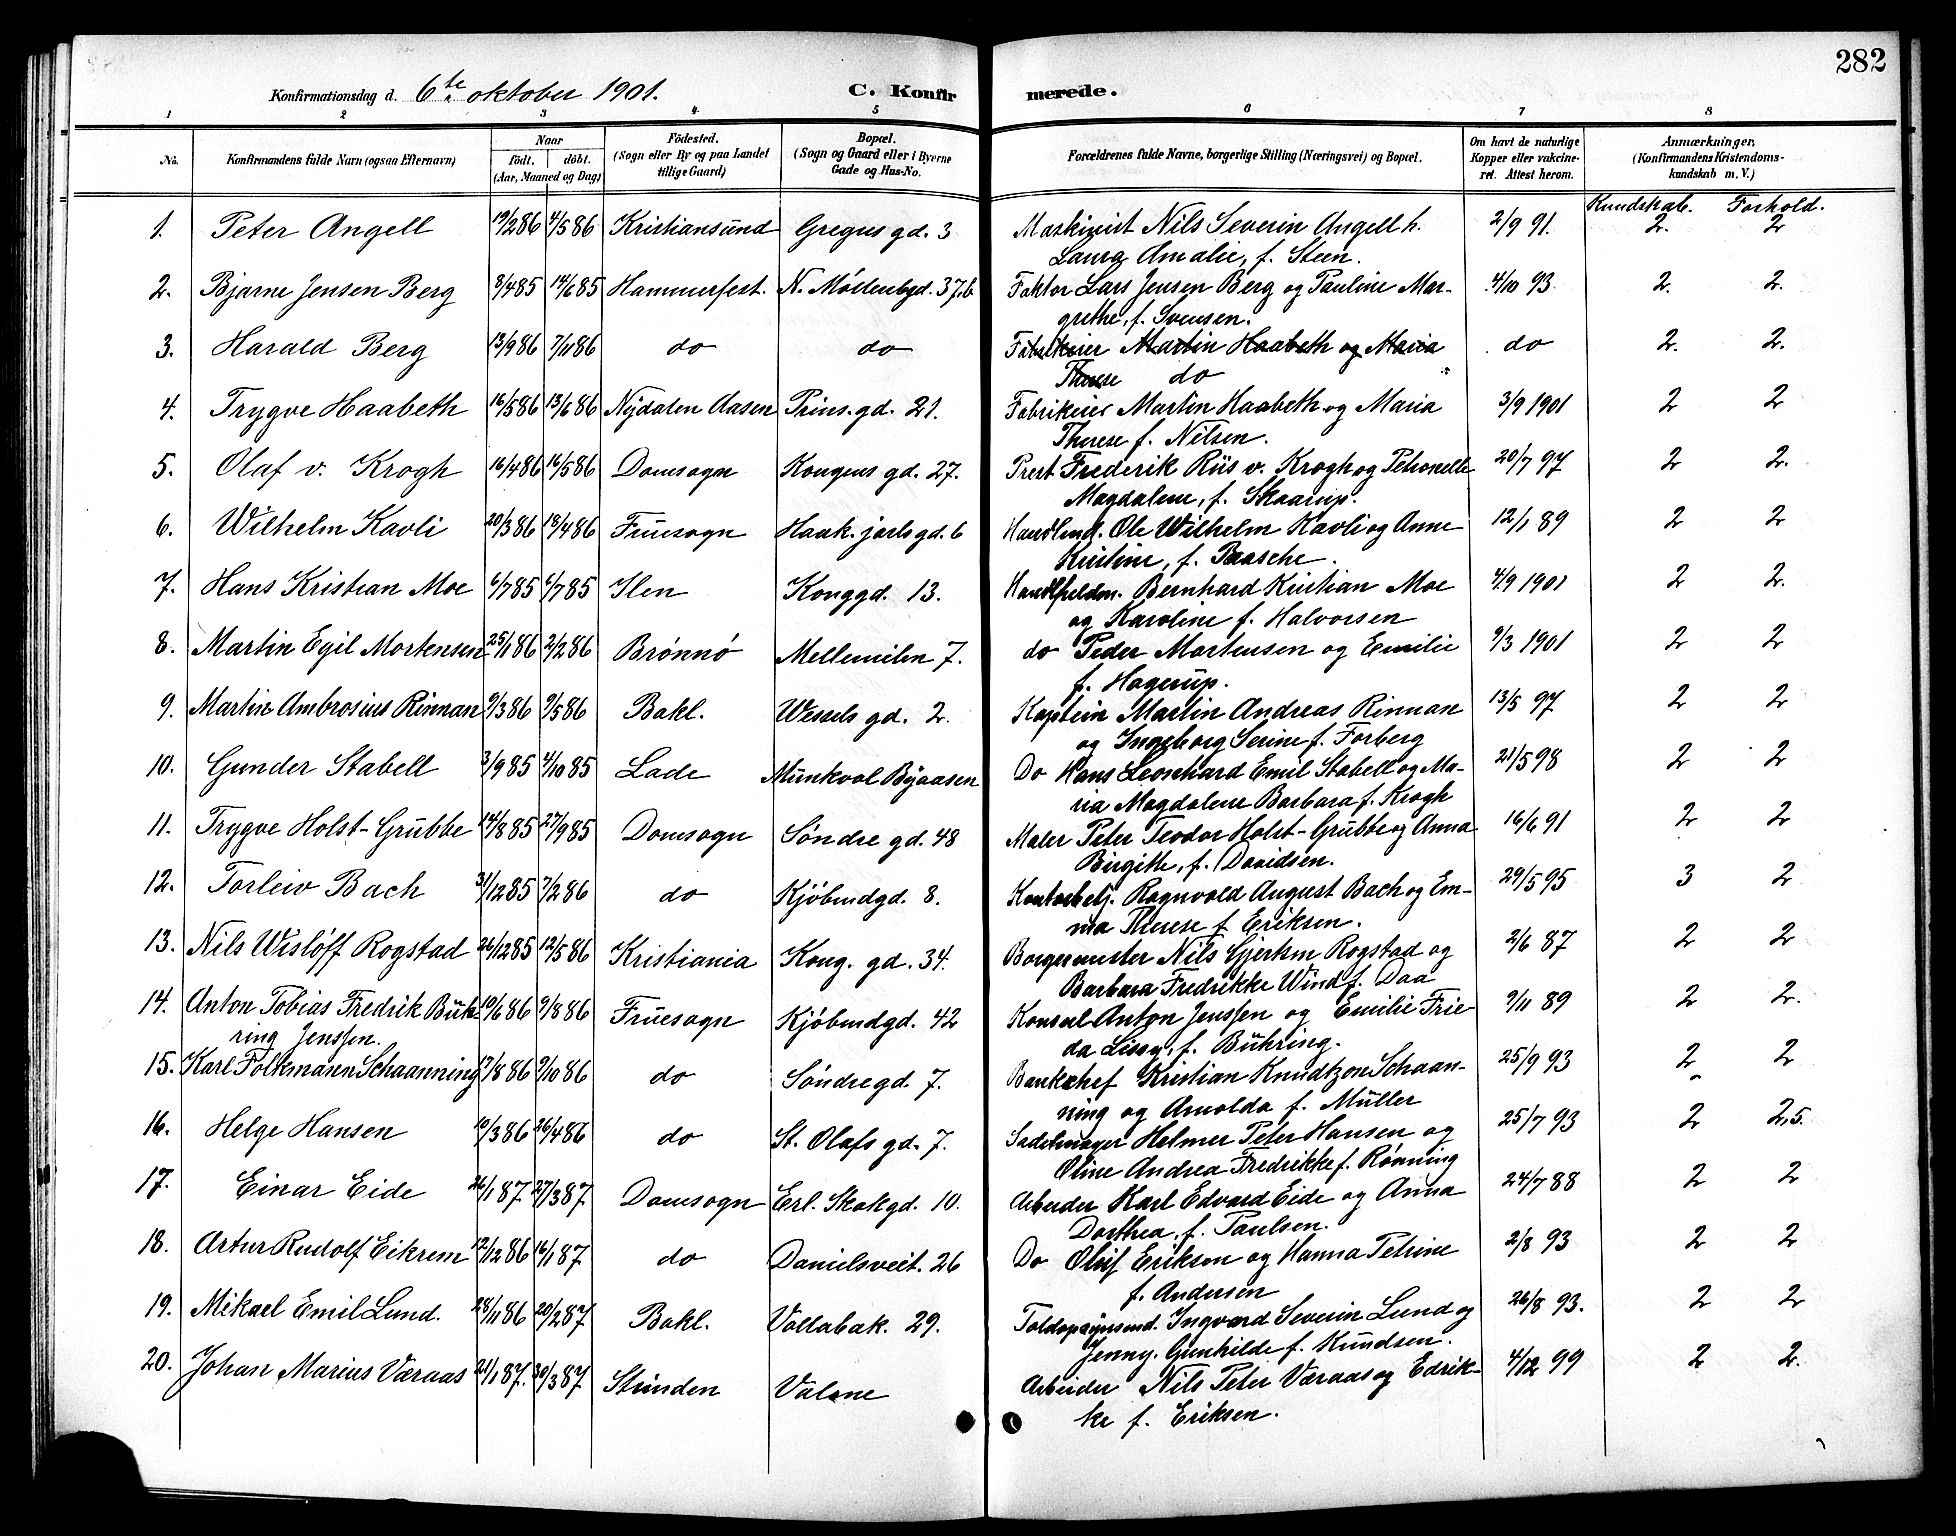 282
Konfirmationsdag d. 6te oktober 1901. C. Konfirmerede.
1 2 3 4 5 6 7 8
No. Konfirmandens fulde Navn (ogsaa Efternavn) Naar födt. döbt. (Aar, Maaned og Dag) Födested. (Sogn eller By og paa Landet tillige Gaard) Bopæl. (Sogn og Gaard eller i Byerne Gade og Hus-No. Forældrenes fulde Navne, borgerlige Stilling (Næringsvei) og Bopæl. Om havt de naturlige Kopper eller vakcineret. Attest herom. Anmærkninger, (Konfirmandens Kristendomskundskab m. V.)
Kundskab. Forhold.
1. Peter Angell 19/2 86 4/5 86 Kristiansund Gregus gd. 3 Maskinist Nils Severin Angell h. 2/9 91. 2. 2
Laura Amalie, f. Steen.
2. Bjarne Jensen Berg 3/4 85 14/6 85 Hammerfest. N. Møllenbgd. 37b. Faktor Lars Jensen Berg og Pauline Mar- 4/10 93. 2. 2.
grethe, f. Svensen.
3. Harald Berg 13/9 86 7/11 86 do do Fabrikeier Martin Haabeth og Maria do 2. 2.
Therese do
4. Trygve Haabeth 16/5 86 13/6 86 Nydalen Aasen Prins. gd. 21. Fabrikeier Martin Haabeth og Maria 3/9 1901 2 2
Therese f. Nilsen.
5. Olaf v. Krogh 16/4 86 16/5 86 Domsogn Kongens gd. 27. Prest Frederik Riis v. Krogh og Petronelle 20/7 97 2 2.
Magdalene, f. Skaarup.
6. Wilhelm Kavli 20/3 86 18/4 86 Fruesogn Haak. jarls gd. 6 Handlend. Ole Wilhelm Kavli og Anne 12/1 89 2 2
Kristine, f. Paasche.
7. Hans Kristian Moe 6/7 85 6/7 85 Ilen Konggd. 13. Handlfuldm. Bernhard Kristian Moe 4/9 1901 2 2.
og Karoline f. Halvorsen
8. Martin Egil Mortensen 25/1 86 2/2 86 Brønnø Mellemilen 7. do Peder Mortensen og Emilie 9/3 1901 2 2
f. Hagerup.
9. Martin Ambrosius Rinnan 9/3 86 9/5 86 Bakl. Wessels gd. 2. Kaptein Martin Andreas Rinnan 13/5 97 2 2
og Ingeborg Serine f. Forberg
10. Gunder Stabell 3/9 85 4/10 85 Lade Munkvol Byaasen Do Hans Leonhard Emil Stabell og Ma- 21/5 98 2 2
ria Magdalene Barbara f. Krogh
11. Trygve Holst-Grubbe 14/8 85 27/9 85 Domsogn Søndre gd. 48 Maler Peter Teodor Holst-Grubbe og Anna 16/6 91 2 2
Birgitte, f. Davidsen.
12. Torleiv Bach 31/12 85 7/2 86 do Kjøbmdgd. 8. Kontorbetj. Ragnvald August Bach og Em- 29/5 95 3 2
ma Therese f. Eriksen.
13. Nils Wisløff Rogstad 26/12 85 12/5 86 Kristiania Kong. gd. 34. Borgermester Nils Gjertsen Rogstad og 2/6 87 2 2
Barbara Fredrikke Wind f. Daa
14. Anton Tobias Fredrik Büh- 10/6 86 9/8 86 Fruesogn Kjøbmdgd. 42 Konsul Anton Jenssen og Emilie Frie- 9/11 89 2 2.
ring Jenssen. da Lissy, f. Bühring.
15. Karl Folkmann Schaanning 17/8 86 9/10 86 do Søndregd. 7. Bankchef Kristian Knudtzon Schaan- 25/9 93 2 2
ning og Arnolda f. Müller
16. Helge Hansen 10/3 86 26/4 86 do St. Olafs gd. 7. Sadelmager Helmer Peter Hansen og 25/7 93 2 2,5.
Oline Andrea Fredrikke f. Rønning
17. Einar Eide 26/1 87 27/3 87 Domsogn Erl. Skakgd. 10. Arbeider Karl Edvard Eide og Anna 24/7 88 2 2
Dorthea, f. Paulsen.
18. Artur Rudolf Eikrem 12/12 86 16/1 87 do Danielsveit. 26 Do Oluf Eriksen og Hanna Petrine 2/8 93 2 2
f. Andersen
19. Mikael Emil Lund. 28/11 86 20/2 87 Bakl. Vollabak. 29. Toldopsynsmd. Ingvard Severin Lund og 26/8 93. 2 2
Jenny. Gunhilde f. Knudsen.
20. Johan Marius Væraas 21/1 87. 30/3 87 Strinden Valene Arbeider Nils Peter Væraas og Edrik- 4/12 99 2 2.
ke f. Eriksen.